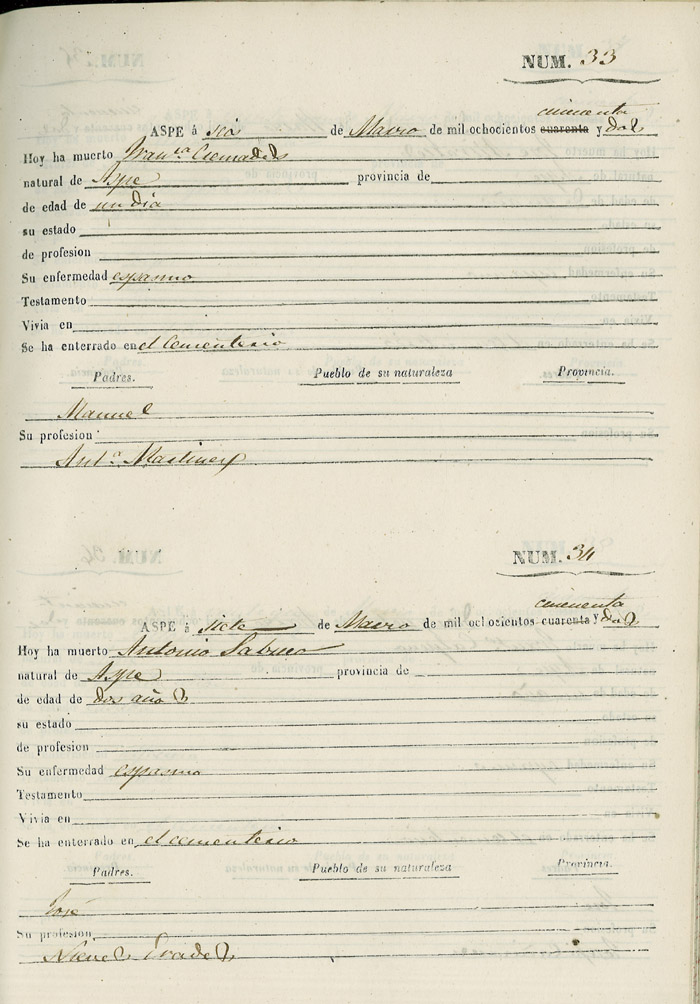 NUM. 33
cincuenta
ASPE á seis de Marzo de mil ochocientos cuarenta y dos
Hoy ha muerto Fran.ca Cremades
natural de Aspe provincia de
de edad de un dia
su estado
de profesion
Su enfermedad espasmo
Testamento
Vivia en
Se ha enterrado en el Cementerio
Padres. Pueblo de su naturaleza Provincia.
Manuel
Su profesion
Ant.a Martinez
NUM. 34
cincuenta
ASPE á siete de Marzo de mil ochozientos cuarenta y dos
Hoy ha muerto Antonio Sabuco
natural de Aspe provincia de
de edad de dos años
su estado
de profesion
Su enfermedad espasmo
Testamento
Vivia en
Se ha enterrado en el cementerio
Padres. Pueblo de su naturaleza Provincia.
José
Su profesion
Nieves Prades